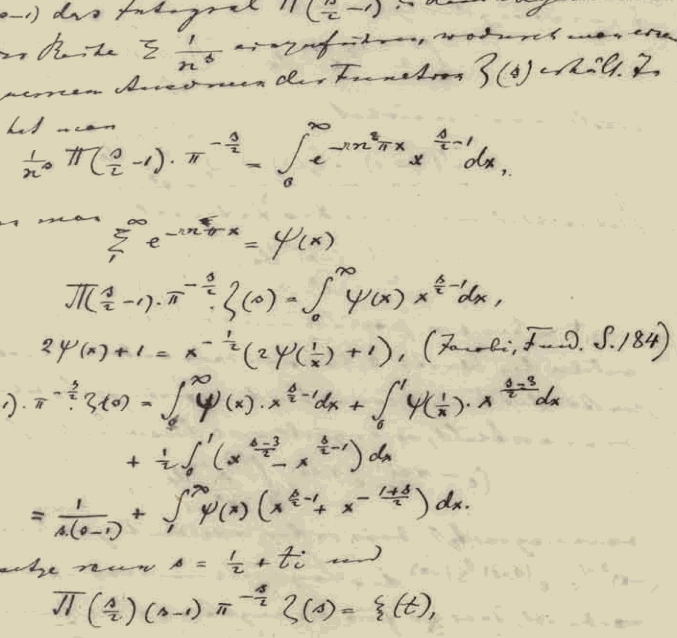 s-1) das Integral Π(s/2 -1)
Reihe Σ 1/n^s einzuführen, wodurch man einen
Ausdruck der Function ζ(s) erhält. In
hat man
1/n^s Π(s/2 -1). π^(-s/2) = ∫_0^∞ e^(-nnπx) x^(s/2 -1) dx,
man
Σ_1^∞ e^(-nnπx) = ψ(x)
Π(s/2 -1). π^(-s/2). ζ(s) = ∫_0^∞ ψ(x) x^(s/2 -1) dx,
2ψ(x)+1 = x^(-1/2) (2ψ(1/x) +1), (Jacobi, Fund. S. 184)
). π^(-s/2). ζ(s) = ∫_0^∞ ψ(x). x^(s/2 -1) dx + ∫_0^1 ψ(1/x). x^((s-3)/2) dx
+ 1/2 ∫_0^1 (x^((s-3)/2) - x^(s/2 -1)) dx
= 1/(s.(s-1)) + ∫_1^∞ ψ(x) (x^(s/2 -1) + x^(-(1+s)/2)) dx.
setze nun s = 1/2 + ti und
Π(s/2) (s-1) π^(-s/2) ζ(s) = ξ(t),